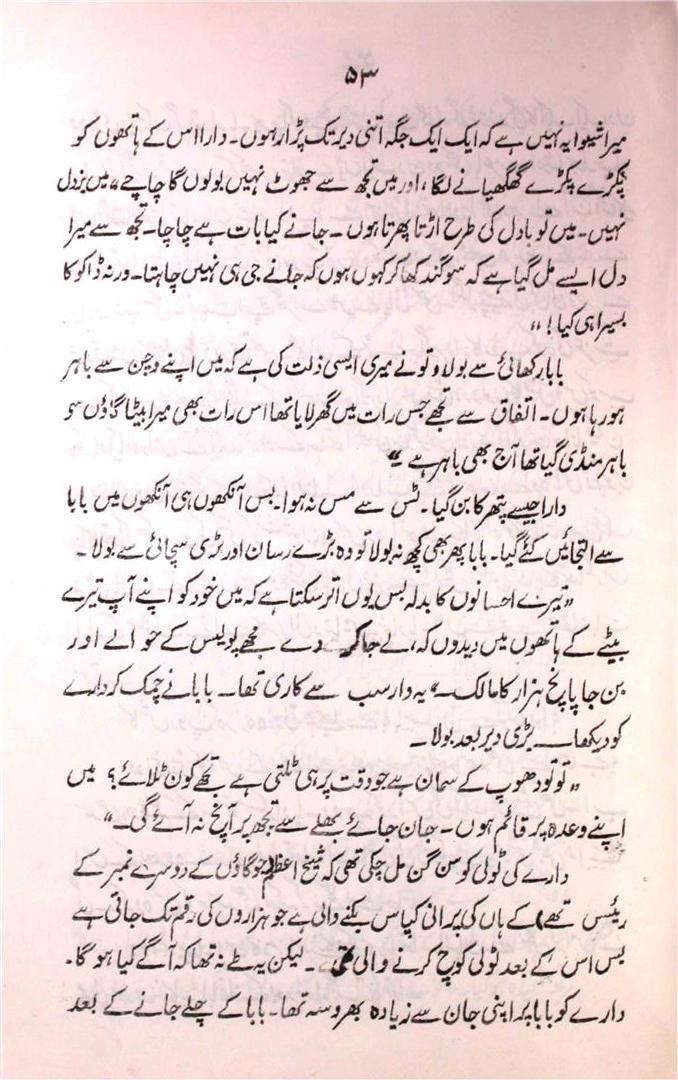 ۵۳
میرا شیوا یہ نہیں ہے کہ ایک ایک جگہ اتنی دیر تک پڑا رہوں۔ دارا اس کے ہاتھوں کو
پکڑے پکڑے گھگھیانے لگا، اور میں تجھ سے جھوٹ نہیں بولوں گا چاچے، میں بزدل
نہیں۔ میں تو بادل کی طرح اڑتا پھرتا ہوں۔ جانے کیا بات ہے چاچا۔ تجھ سے میرا
دل ایسے مل گیا ہے کہ سوگند کھا کر کہوں ہوں کہ جانے جی ہی نہیں چاہتا۔ ورنہ ڈاکو کا
بسیرا ہی کیا!"
بابا رکھائی سے بولا و تو نے میری ایسی ذلت کی ہے کہ میں اپنے وچن سے باہر
ہو رہا ہوں۔ اتفاق سے تجھے جس رات میں گھر لایا تھا اس رات بھی میرا بیٹا گاؤں سو
باہر منڈی گیا تھا آج بھی باہر ہے"
دارا جیسے پتھر کا بن گیا۔ ٹس سے مس نہ ہوا۔ بس آنکھوں ہی آنکھوں میں بابا
سے التجائیں کئے گیا۔ بابا پھر بھی کچھ نہ بولا تو وہ بڑے رسان اور بڑی سچائی سے بولا۔
"تیرے احسانوں کا بدلہ بس یوں اتر سکتا ہے کہ میں خود کو اپنے آپ تیرے
بیٹے کے ہاتھوں میں دیدوں کہ، لے جا کر دے مجھے پولیس کے حوالے اور
بن جا پانچ ہزار کا مالک۔" یہ وار سب سے کاری تھا۔ بابا نے چمک کر دارے
کو دیکھا ــــ بڑی دیر بعد بولا۔
"تو تو دھوپ کے سمان ہے جو وقت پر ہی ٹلتی ہے تجھے کون ٹلائے؟ میں
اپنے وعدہ پر قائم ہوں۔ جان جائے بھلے سے تجھ پر آنچ نہ آئے گی۔"
دارے کی ٹولی کو سن گن مل چکی تھی کہ شیخ اعظم (جو گاؤں کے دوسرے نمبر کے
رئیس تھے) کے ہاں کی پرانی کپاس بکنے والی ہے جو ہزاروں کی رقم تک جاتی ہے
بس اس کے بعد ٹولی کوچ کرنے والی تھی۔ لیکن یہ طے نہ تھا کہ آگے کیا ہو گا۔
دارے کو بابا پہ اپنی جان سے زیادہ بھروسہ تھا۔ بابا کے چلے جانے کے بعد